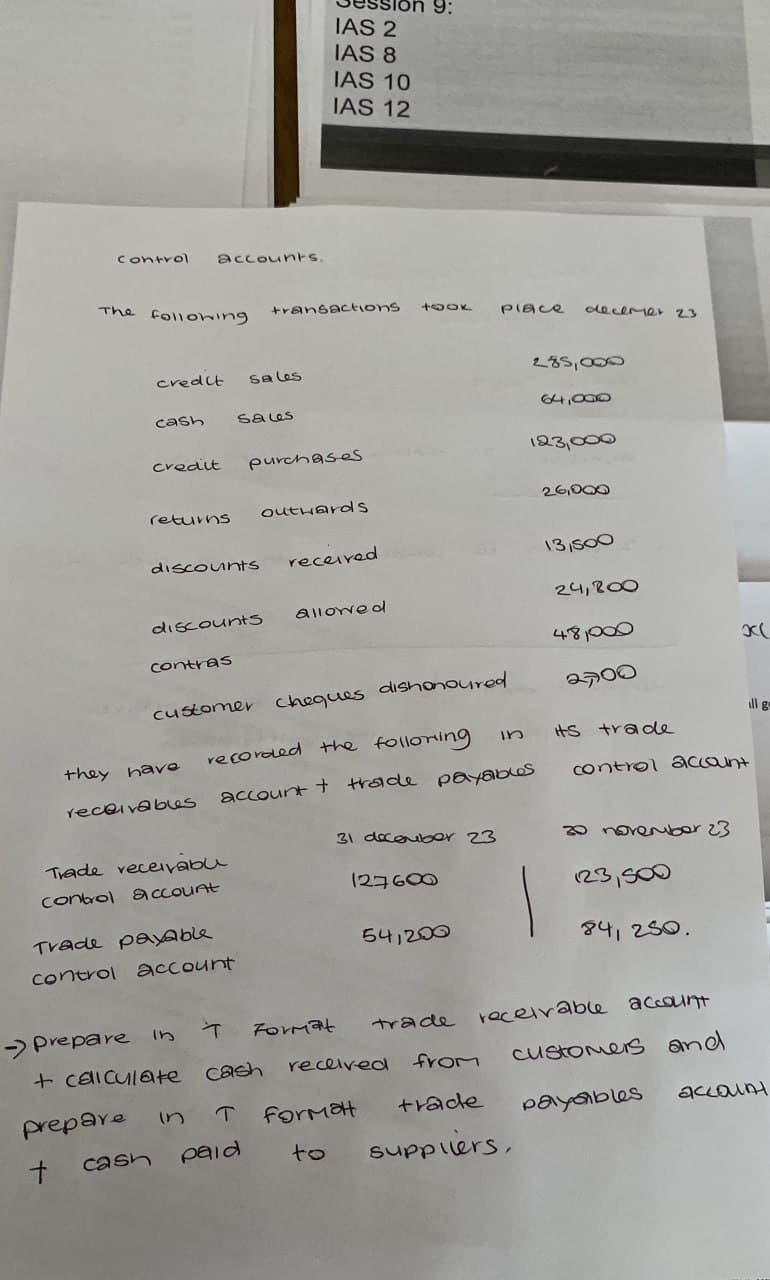 Session 9:
IAS 2
IAS 8
IAS 10
IAS 12
control accounts.
The following transactions took place decemer 23
credit sales 285,000
cash sales 64,000
credit purchases 123,000
returns outwards 26,000
discounts received 13,500
discounts allowed 24,800
contras 48,000
customer cheques dishonoured 2700
they have recorded the following in its trade
receivables account + trade payables control account
31 december 23 30 november 23
Trade receivable
control account 127600 123,500
Trade payable
control account 54,200 84,250.
→ prepare in T Format trade receivable account
+ calculate cash received from customers and
prepare in T format trade payables account
+ cash paid to suppliers.